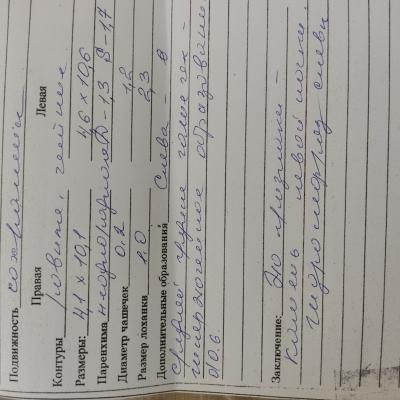 Подвижность сохранена
Правая Левая
Контуры ровные, четкие
Размеры: 4,1 x 10,1 4,6 x 10,6
Паренхима неоднородная D - 1,3 S - 1,7
Диаметр чашечек 0,2 1,2
Размер лоханки 1,0 2,3
Дополнительные образования Слева - в
средней группе чашечек -
гиперэхогенное образование
d 0,6
Заключение: Эхо признаки -
камень левой почки.
Гидронефроз слева